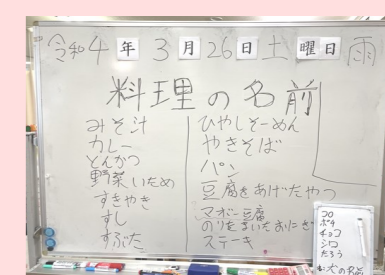 令和4年3月26日土曜日 雨
料理の名前
みそ汁
カレー
とんかつ
野菜いため
すきやき
すし
すぶた
ひやしそーめん
やきそば
パン
豆腐をあげたやつ
マーボー豆腐
のりをまいたおにぎり
ステーキ
コロ
ポチ
チョコ
シロ
たろう
犬の名前